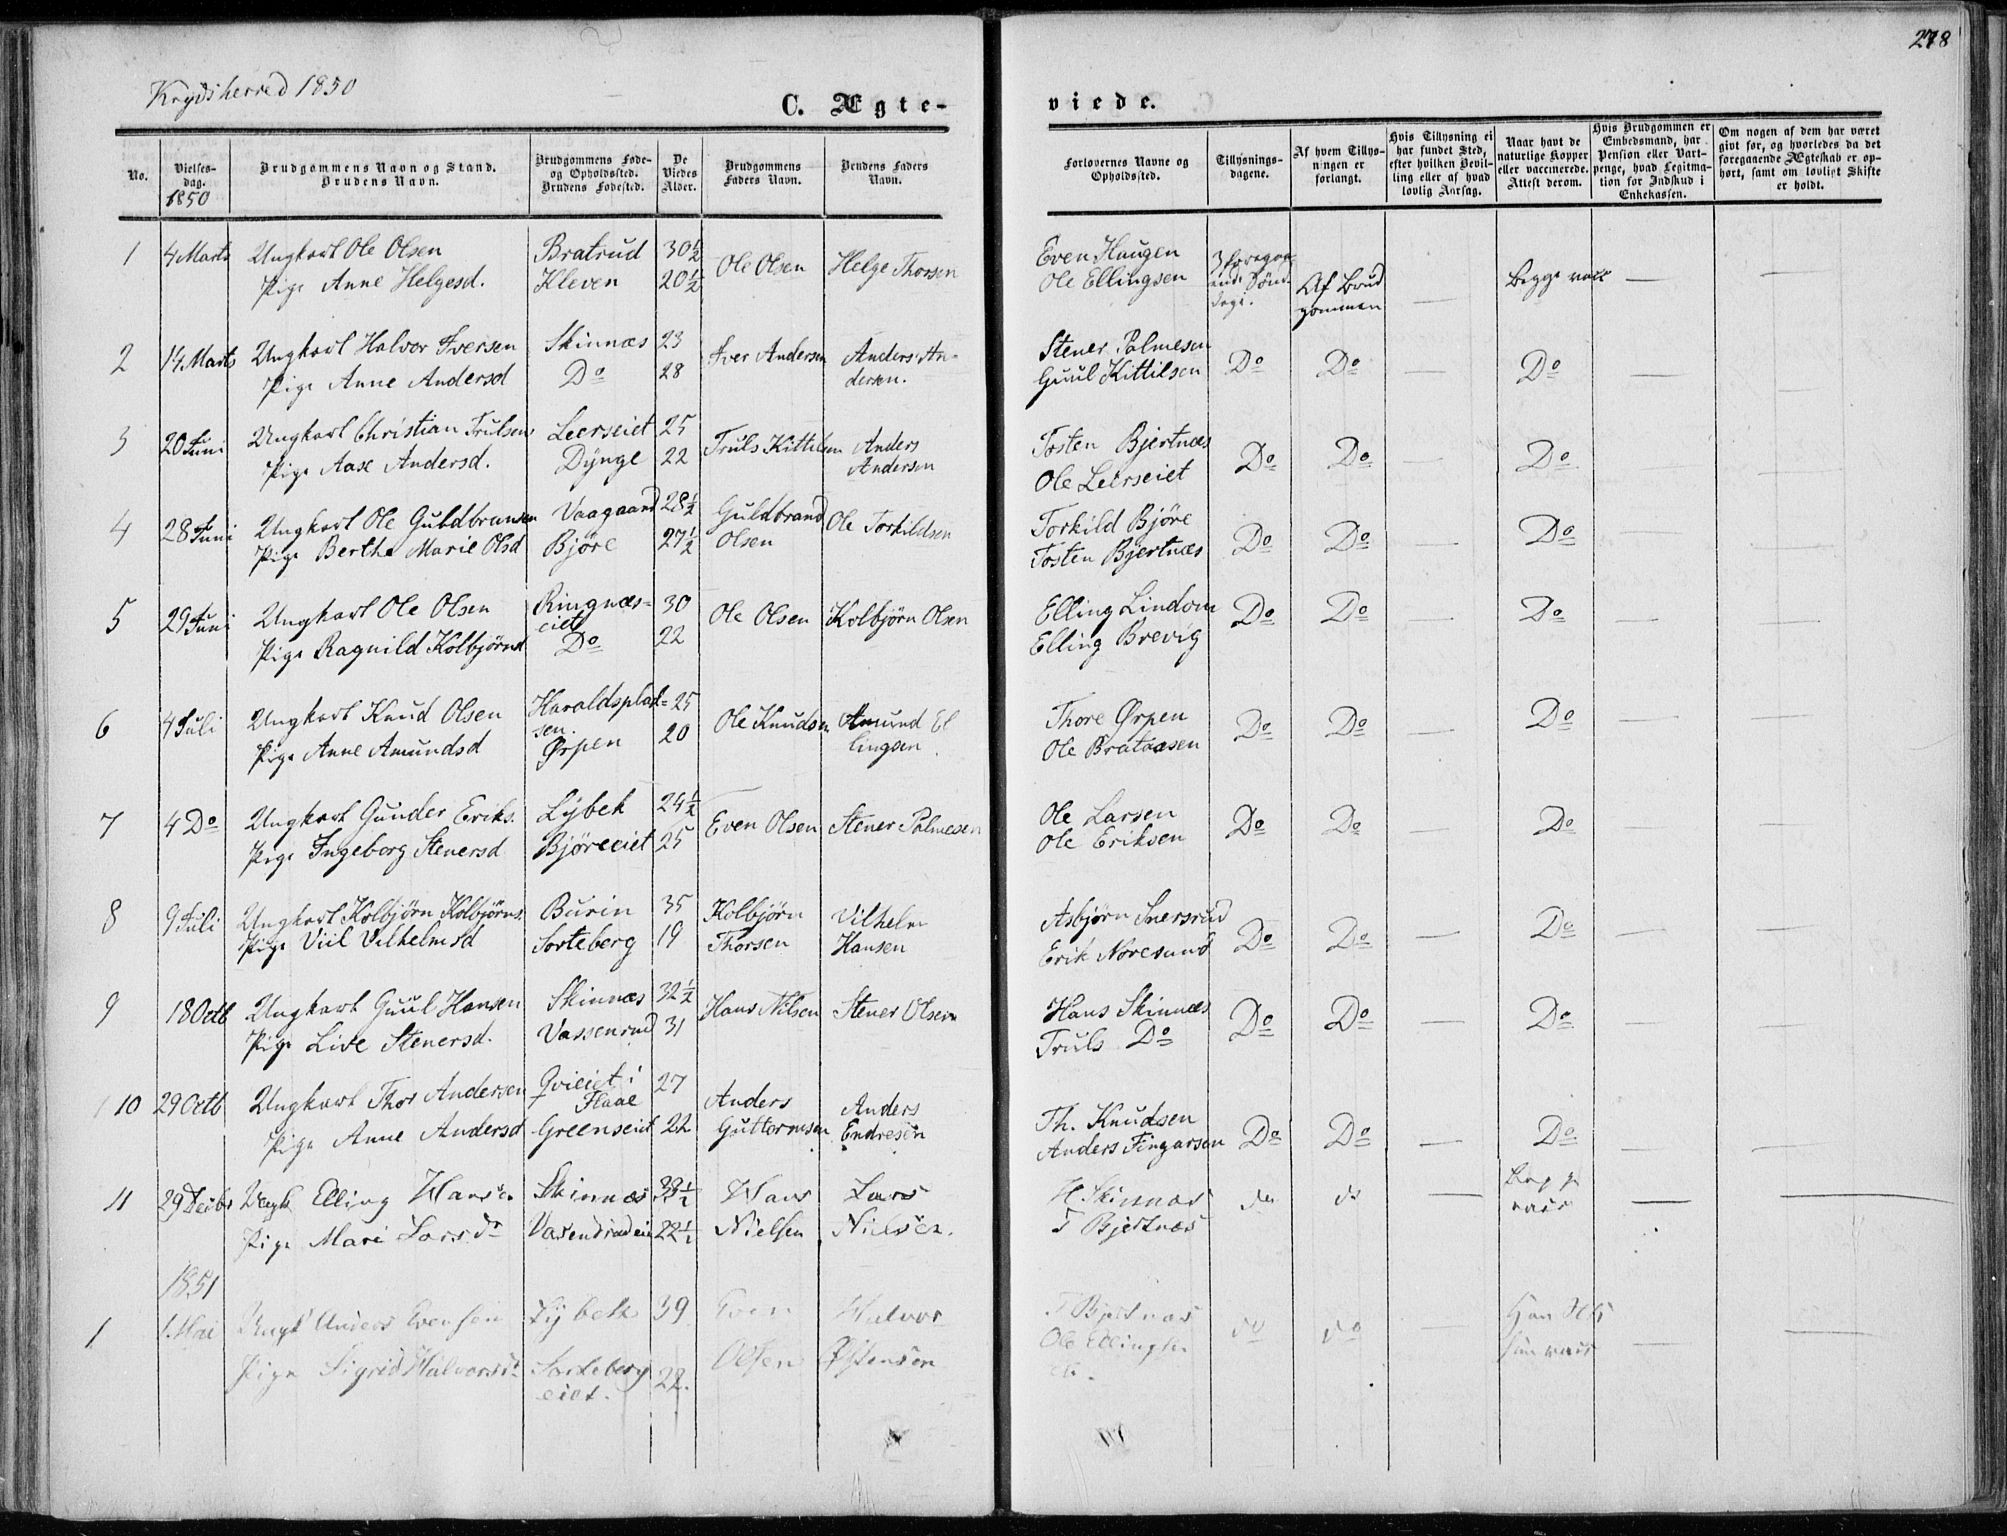 Krydsherred 1850
278
C. Ægte-
viede.
No.
Vielses-
dag.
1850
Brudgommens Navn og Stand.
Brudens Navn.
Brudgommens Føde-
og Opholdssted.
Brudens Fødested.
De
Viedes
Alder.
Brudgommens
Faders Navn.
Brudens Faders
Navn.
Forlovernes Navne og
Opholdssted.
Tillysnings-
dagene.
Af hvem Tillys-
ningen er
forlangt.
Hvis Tillysning ei
har fundet Sted,
efter hvilken Bevil-
ling eller af hvad
lovlig Aarsag.
Naar havt de
naturlige Kopper
eller vaccinerede.
Attest derom.
Hvis Brudgommen er
Embedsmand, har
Pension eller Vart-
penge, hvad Legitima-
tion for Indskud i
Enkekassen.
Om nogen af dem har været
gift før, og hvorledes da det
foregaaende Ægteskab er op-
hørt, samt om lovligt Skifte
er holdt.
1 4 Marts Ungkarl Ole Olsen Bratrud 30½ Ole Olsen Helge Thorsen Even Haugen 3 foregaa-
Pige Anne Helgesd. Kleven 20½ Ole Ellingsen ende Sønd- Af Brud Begge vacc — —
dage. gommen —
2 14 Marts Ungkarl Halvor Iversen Skinnæs 23 Iver Andersen Anders An- Stener Palmesen Do Do — Do —
Pige Anne Andersd Do 28 dersen. Guul Kittilsen
3 20 Juni Ungkarl Christian Trulsen Leerseiet 25 Truls Kittilsen Anders Tosten Bjertnæs Do Do — Do — —
Pige Aase Andersd. Dynge 22 Andersen Ole Leerseiet
4 28 Juni Ungkarl Ole Guldbransen Vaagaard 28½ Guldbrand Ole Torkildsen Torkild Björe Do Do — Do — —
Pige Berthe Marie Olsd Björe 27½ Olsen Tosten Bjertnæs
5 29 Juni Ungkarl Ole Olsen Ringnæs- 30 Ole Olsen Kolbjörn Olsen Elling Lindom Do Do — Do — —
eiet
Pige Ragnild Kolbjörnsd Do 22 Elling Brevig
6 4 Juli Ungkarl Knud Olsen Haraldsplad- 25 Ole Knudsen Amund El Thore Ørpen Do Do — Do — —
sen.
Pige Anne Amundsd Ørpen 20 lingsen. Ole Brataasen
7 4 Do Ungkarl Gunder Eriks. Lybek 24½ Even Olsen Stener Palmesen Ole Larsen Do Do — Do — —
Pige Ingeborg Stenersd Björeeiet 25 Ole Eriksen
8 9 Juli Ungkarl Kolbjörn Kolbjörns. Burin 35 Kolbjörn Vilhelm Asbjörn Snersrud Do Do — Do — —
Pige Viil Vilhelmsd Sorteberg 19 Thorsen Hansen Erik Noresund
9 18 Octb Ungkarl Guul Hansen Skinnæs 32½ Hans Nilsen Stener Olsen Hans Skinnæs Do Do — Do — —
Pige Live Stenersd. Vassenrud 31 Truls Do
10 29 Octb Ungkarl Thor Andersen Qvieiet i 27 Anders Anders Th. Knudsen Do Do — Do — —
Flaae
Pige Anne Andersd Greenseiet 22 Guttormsen Endresen Anders Fingarsen
11 29 Decbr Ungk Elling Hansen Skinnæs 33½ Hans Lars H. Skinnæs do do — Begge — —
Pige Mari Larsdr Vasendrudeie 22½ Nielsen Nielsen. T Bjertnæs vacc
1851
1 1 Mai Ungk Anders Evensen Lybek 39 Even Halvor T Bjertnæs do do — Han
Pige Sigrid Halvorsdr Sorteberg 28. Olsen Østensen Ole Ellingsen hun vacc — —
eiet.